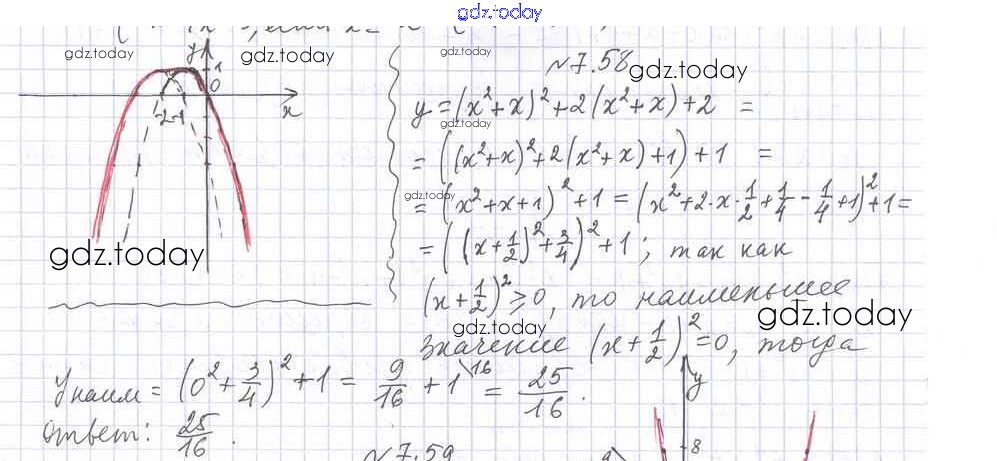 gdz.today
gdz.today
gdz.today
gdz.today
y
1
0
-2 -1
x
№7.58
gdz.today
y = (x²+x)² + 2(x²+x) + 2 =
gdz.today
= ((x²+x)² + 2(x²+x) + 1) + 1 =
gdz.today
= (x²+x+1)² + 1 = (x² + 2·x·1/2 + 1/4 - 1/4 + 1)² + 1 =
= ((x+1/2)² + 3/4)² + 1; так как
gdz.today
(x+1/2)² ≥ 0, то наименьшее
gdz.today
gdz.today
значение (x+1/2)² = 0, тогда
y наим = (0² + 3/4)² + 1 = 9/16 + 1\16 = 25/16.
ответ: 25/16.
№7.59
y
8